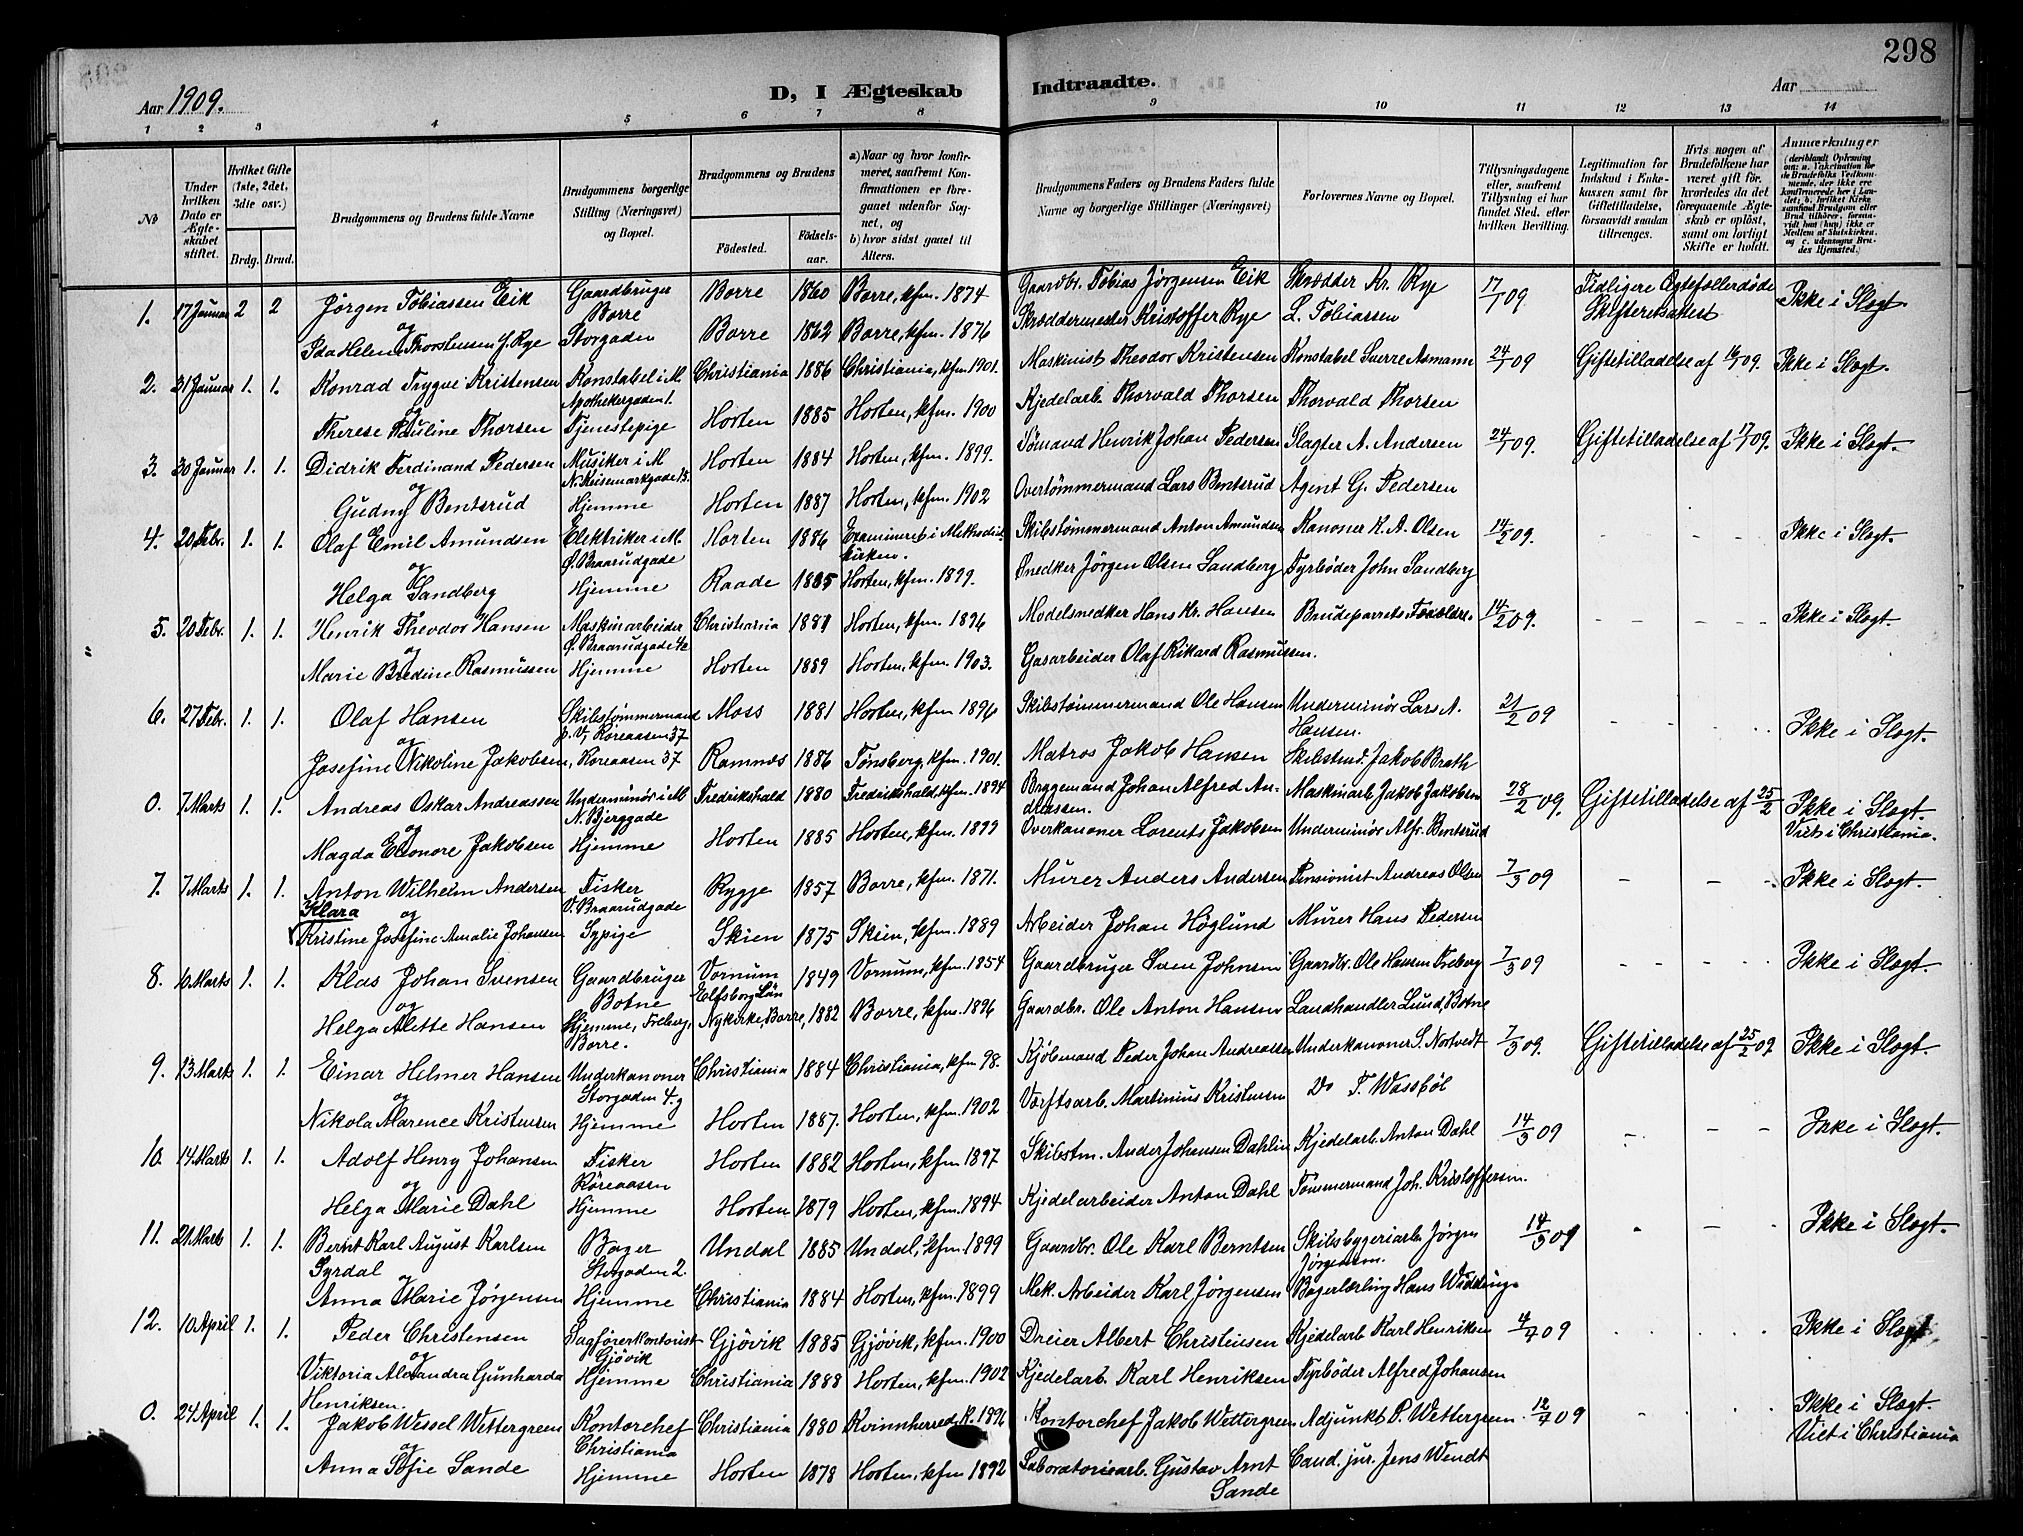 298
Aar 1909.
D, I Ægteskab Indtraadte.
Aar
1 2 3 4 5 6 7 8 9 10 11 12 13 14
No
Under hvilken Dato er Ægteskabet stiftet.
Hvilket Gifte (1ste, 2det, 3die osv.)
Brdg. Brud.
Brudgommens og Brudens fulde Navne
Brudgommens borgerlige Stilling (Næringsvei) og Bopæl.
Brudgommens og Brudens
Fødested. Fødselsaar.
a) Naar og hvor konfirmeret, saafremt Konfirmationen er foregaaet udenfor Sognet, og
b) hvor sidst gaaet til Alters.
Brudgommens Faders og Brudens Faders fulde Navne og borgerlige Stillinger (Næringsvei)
Forlovernes Navne og Bopæl.
Tillysningsdagene eller, saafremt Tillysning ei har fundet Sted, efter hvilken Bevilling.
Legitimation for Indskud i Enkekassen samt for Giftetilladelse, forsaavidt saadan tiltrænges.
Hvis nogen af Brudefolkene har været gift før, hvorledes da det foregaaende Ægteskab er opløst, samt om lovligt Skifte er holdt.
Anmærkninger
1. 17 Januar 2 2 Jørgen Tobiassen Eik Gaardbruger Borre Borre 1860 Borre, kfm. 1874 Gaardbr. Tobias Jørgensen Eik Skrædder Kr. Rye 17/1 09 Tidligere Ægtefæller døde Skifteretsattest Ikke i Slægt.
og
Ida Helene Thorstensen f. Rye Storgaden Borre 1862 Borre, kfm. 1876 Skræddermester Kristoffer Rye L. Tobiassen
2. 31 Januar 1. 1. Konrad Trygve Kristensen Konstabel i M. Apothekergaden 1. Christiania 1886 Christiania, kfm. 1901. Maskinist Theodor Kristensen Konstabel Sverre Asmann 24/1 09 Giftetilladelse af 16/1 09. Ikke i Slægt.
og
Therese Pauline Thorsen Tjenestepige Horten 1885 Horten, kfm. 1900 Kjedelarb. Thorvald Thorsen Thorvald Thorsen
3. 30 Januar 1. 1. Didrik Ferdinand Pedersen Musiker i M Horten 1884 Horten, kfm. 1899. Sømand Henrik Johan Pedersen Slagter A. Andersen 24/1 09. Giftetilladelse af 17/1 09. Ikke i Slægt.
og
Gudny Bentsrud Hjemme Horten 1887 Horten, kfm. 1902 Overtømmermand Lars Bentsrud Agent G. Pedersen
4. 20 Febr. 1. 1. Olaf Emil Amundsen Elektriker i M. Ø. Braarudgade Horten 1886 Examineret i Methodistkirken. Skibstømmermand Anton Amundsen Kanoner K. A. Olsen 14/2 09. - - - Ikke i Slægt.
og
Helga Sandberg Hjemme Raade 1885 Horten, kfm. 1899. Snedker Jørgen Olsen Sandberg Fyrbøder John Sandberg
5. 20 Febr. 1. 1. Henrik Theodor Hansen Maskinarbeider Ø. Braarudgade Christiania 1881 Horten, kfm. 1896 Modelsnedker Hans Kr. Hansen Brudeparrets Forældre. 14/2 09. - - - - Ikke i Slægt.
og
Marie Bredine Rasmussen Hjemme Horten 1889 Horten, kfm. 1903. Gasarbeider Olaf Rikard Rasmussen.
6. 27 Febr. 1. 1. Olaf Hansen Skibstømmermand p. V, Røreaasen 37 Moss 1881 Horten, kfm 1896 Skibstømmermand Ole Hansen Underminør Lars A. Hansen. 21/2 09 - - - Ikke i Slægt.
og
Josefine Nikoline Jakobsen, Røreaasen 37 Ramnes 1886 Tønsberg, kfm. 1901. Matros Jakob Hansen Skibstmd. Jakob Brath
0. 7 Marts 1. 1. Andreas Oskar Andreassen Underminør i M N. Bjerggade Fredrikshald 1880 Fredrikshald, kfm. 1894 Bryggemand Johan Alfred Andreassen. Maskinarb Jakob Jakobsen 28/2 09. Giftetilladelse af 25/2 Ikke i Slægt. Viet i Christiania.
og
Magda Eleonore Jakobsen Hjemme Horten 1885 Horten, kfm. 1899 Overkanoner Lorents Jakobsen Underminør Alfr. Bentsrud
7. 7 Marts 1. 1. Anton Wilhelm Andersen Fisker V. Braarudgade Rygge 1857 Borre, kfm. 1871. Murer Anders Andersen Pensionist Andreas Olsen 7/3 09 - - - Ikke i Slægt.
Klara og
Kristine Josefine Amalie Johansen Sypige Skien 1875 Skien, kfm. 1889 Arbeider Johan Höglund Murer Hans Pedersen
8. 10 Marts 1. 1. Klas Johan Svensen Gaardbruger Botne Vornum Elfsborg Län 1849 Vornum, kfm. 1854 Gaardbruger Sven Johnsen Gaardbr. Ole Hansen Freberg 7/3 09 - - - - Ikke i Slægt.
og
Helga Alette Hansen Hjemme, Freberg, Borre. Nykirke, Borre, 1882 Borre, kfm. 1896 Gaardbr. Ole Anton Hansen Landhandler Lund, Botne
9. 13 Marts 1. 1. Einar Helmer Hansen Underkanoner Storgaden 4. g Christiania 1884 Christiania, kfm 98. Kjøbmand Peder Johan Andreassen Underkanoner S. Nortvedt 7/3 09. Giftetilladelse af 25/2 09 Ikke i Slægt.
og
Nikola Marence Kristensen Hjemme Horten 1887. Horten, kfm. 1902 Værftsarb. Martinius Kristensen Do T. Wassbøl
10. 14 Marts 1. 1. Adolf Henry Johansen Fisker Røreaasen Horten 1882 Horten, kfm. 1897 Skibstm. Ander Johansen Dahlin Kjedelarb. Anton Dahl 14/3 09 - - - Ikke i Slægt.
og
Helga Marie Dahl Hjemme Horten 1879 Horten, kfm. 1894 Kjedelarbeider Anton Dahl Tømmermand Joh. Kristoffersen.
11. 21 Marts 1. 1. Bernt Karl August Karlsen Syrdal Bager Storgaden 2. Undal 1885 Undal, kfm. 1899 Gaardbr. Ole Karl Berntsen Skibsbyggeriarb. Jørgen Jørgensen. 14/3 09 - - - Ikke i Slægt.
og
Anna Marie Jørgensen Hjemme Christiania 1884 Horten, kfm. 1899 Mek. Arbeider Karl Jørgensen Bagerlærling Hans
12. 10 April 1. 1. Peder Christensen Sagførerkontorist Gjøvik Gjøvik 1885 Gjøvik, kfm. 1900 Dreier Albert Christensen Kjedelarb Karl Henriksen 4/4 09 - - - Ikke i Slægt
og
Viktoria Alexandra Gunharda Henriksen. Hjemme Christiania 1888 Horten, kfm. 1902 Kjedelarb. Karl Henriksen Fyrbøder Alfred Johansen
0. 24 April 1. 1. Jakob Wessel Wettergreen Kontorchef Christiania Christiania 1880 Kvinnherred, K. 1896 Kontorchef Jakob Wettergreen Adjunkt P. Wettergreen. 12/4 09 - - - Ikke i Slægt. Viet i Christiania
og
Anna Sofie Sande Hjemme Horten 1878 Horten, kfm 1892 Laboratoriearb. Gustav Arnt Sande Cand. jur. Jens Wendt